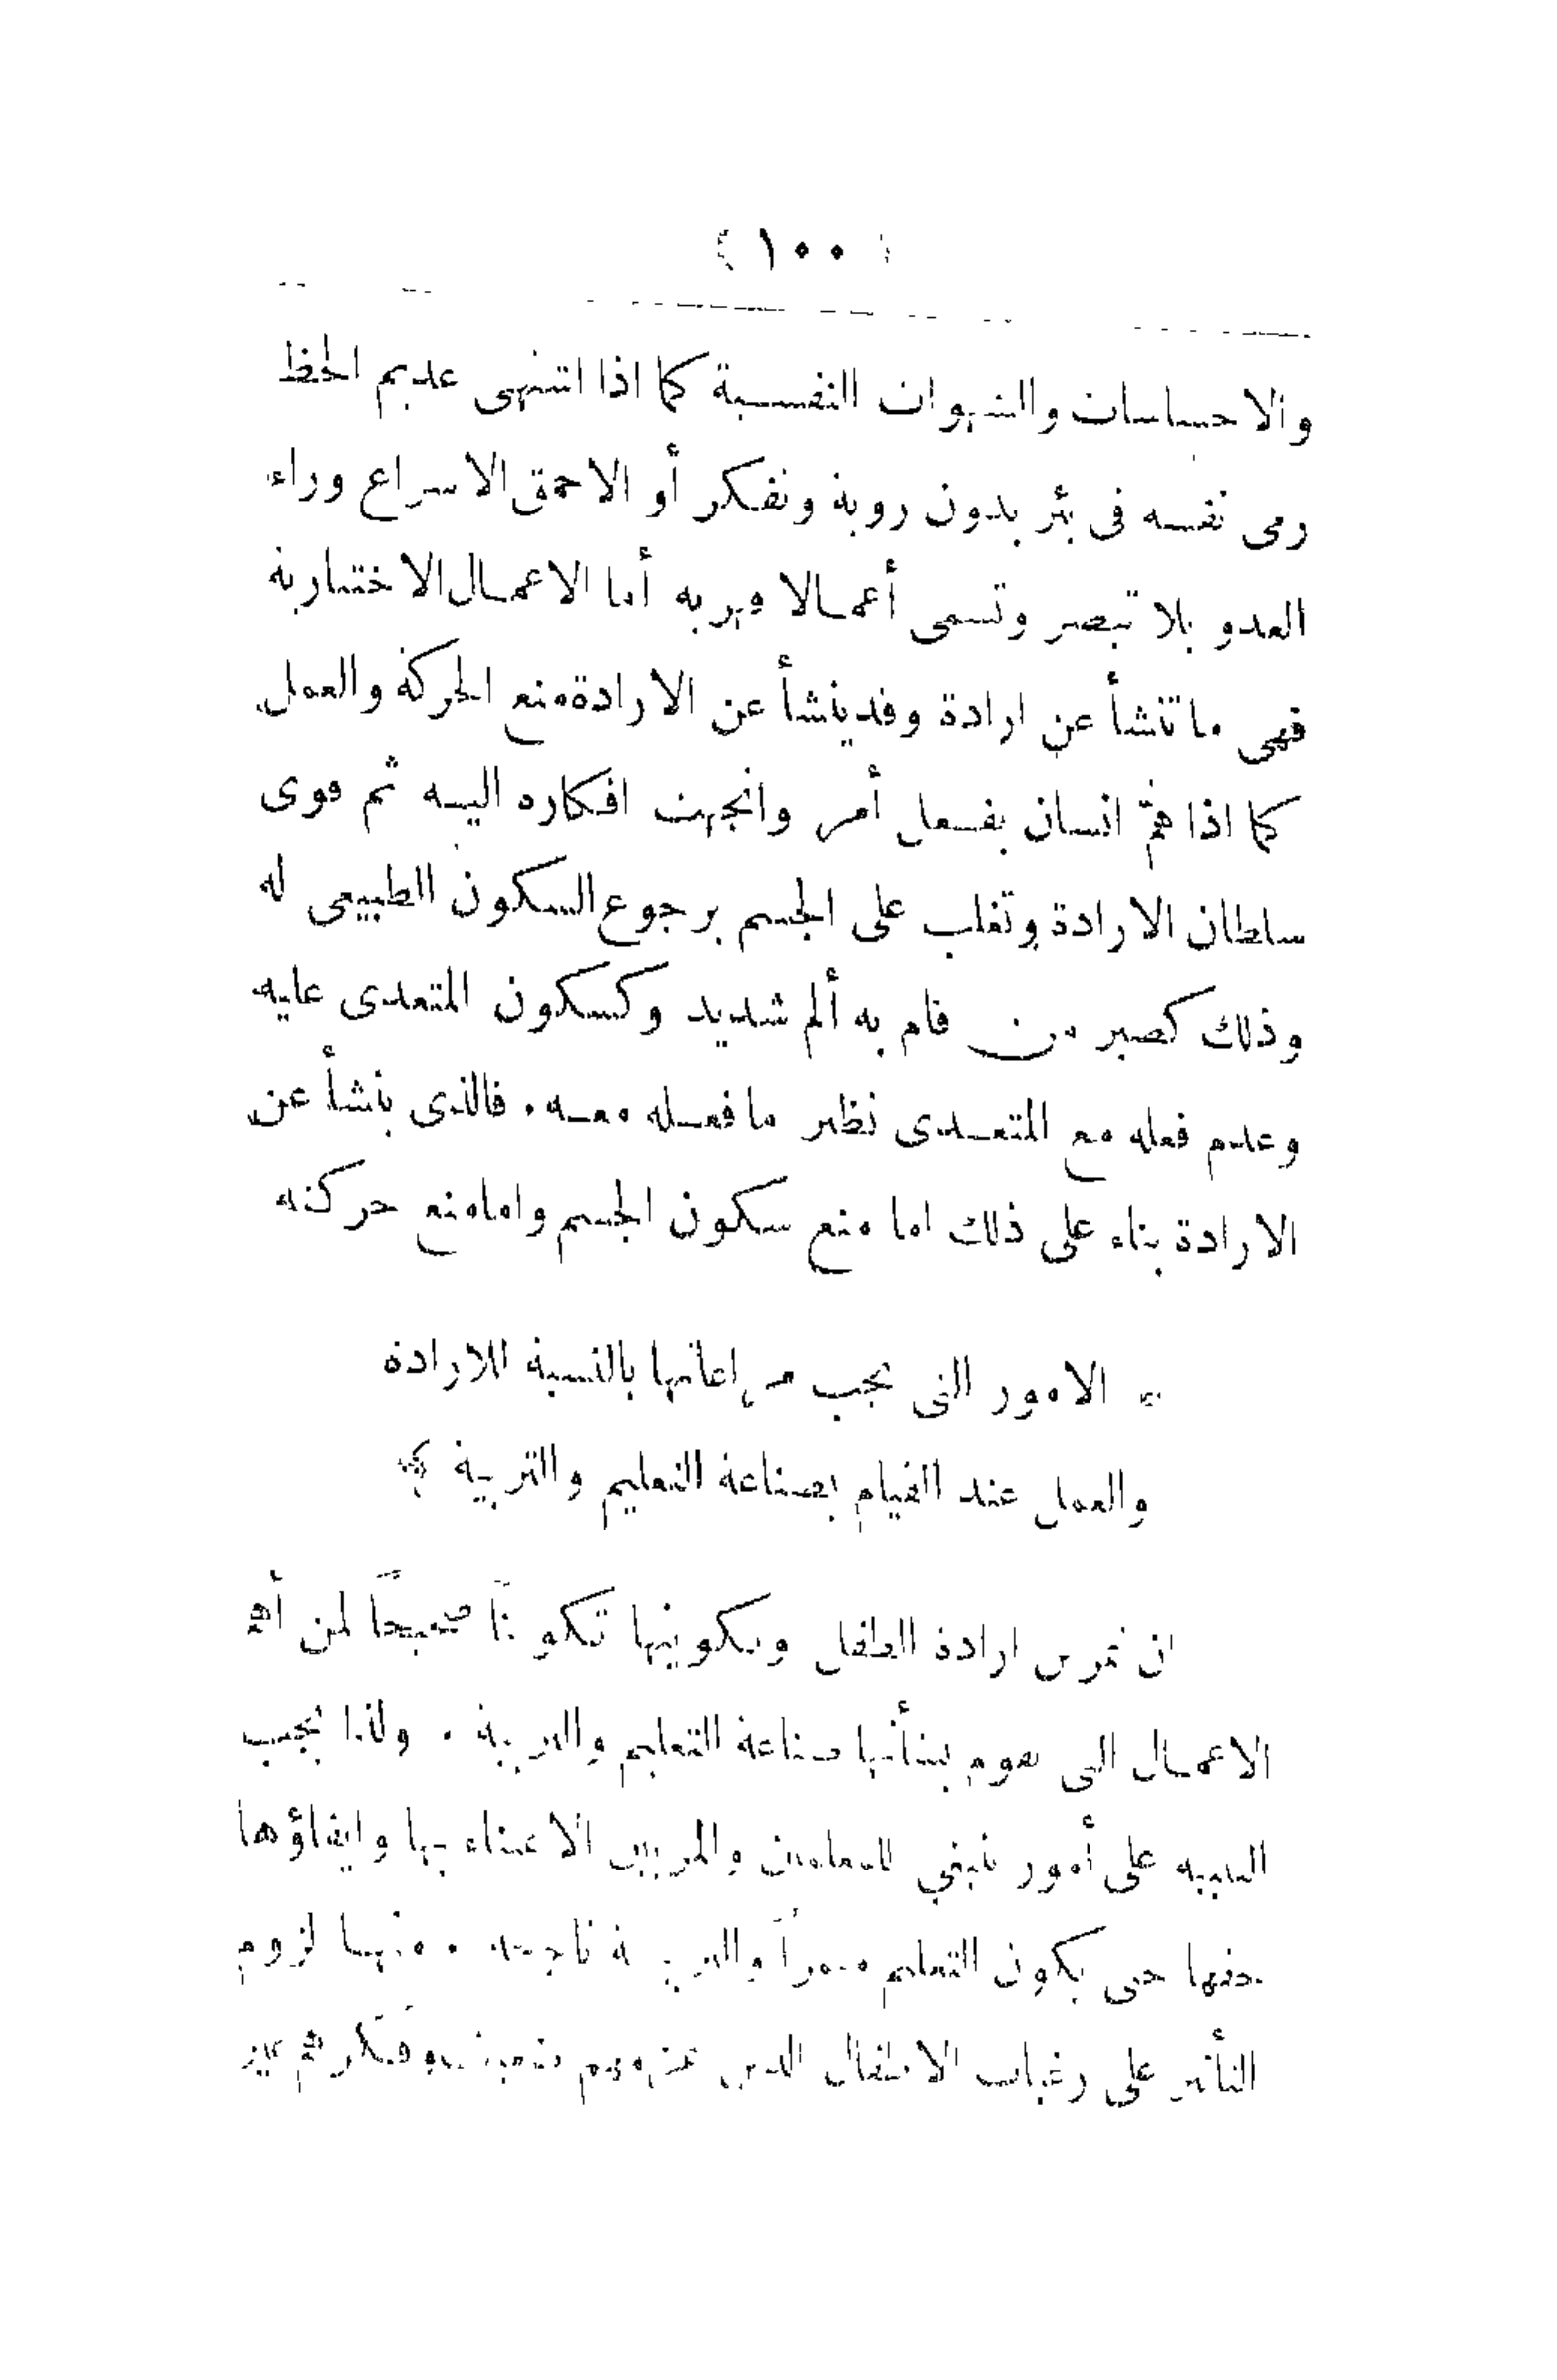 ( ١٠٠ )
والاحساسات والشهوات النفسية كما اذا اشتهى عديم الحظ
رمى نفسه فى بئر بدون روية وتفكر أو الاحمق الاسراع وراء
العدو بلا تبصر وتسمى أعمالا قهريه أما الاعمال الاختيارية
فهى ما تنشأ عن ارادة وقد ينشأ عن الارادة منع الحركة والعمل
كما اذا همّ انسان بفعل أمر واتجهت افكاره اليه ثم قوى
سلطان الارادة وتغلب على الجسم برجوع السكون الطبيعى له
وذلك كصبر من قام به ألم شديد وكسكون المتعدى عليه
وعدم فعله مع المتعدى نظير ما فعله معه . فالذى ينشأ عن
الارادة بناء على ذلك اما منع سكون الجسم واما منع حركته
الامور التى يجب مراعاتها بالنسبة للارادة
والعمل عند القيام بصناعة التعليم والتربية
ان تمرين ارادة الطفل وتكوينها تكوينًا صحيحًا لمن أهم
الاعمال التى تقوم بشأنها صناعة التعليم والتربية . ولذا يجب
التنبيه على أمور ينبغي للمعلمين والمربين الاعتناء بها وايفاؤها
حقها حتى يكون التعليم مثمرًا والتربية ناجحة . منها لزوم
التأثير على رغبات الاطفال الذين وفكرهم غير